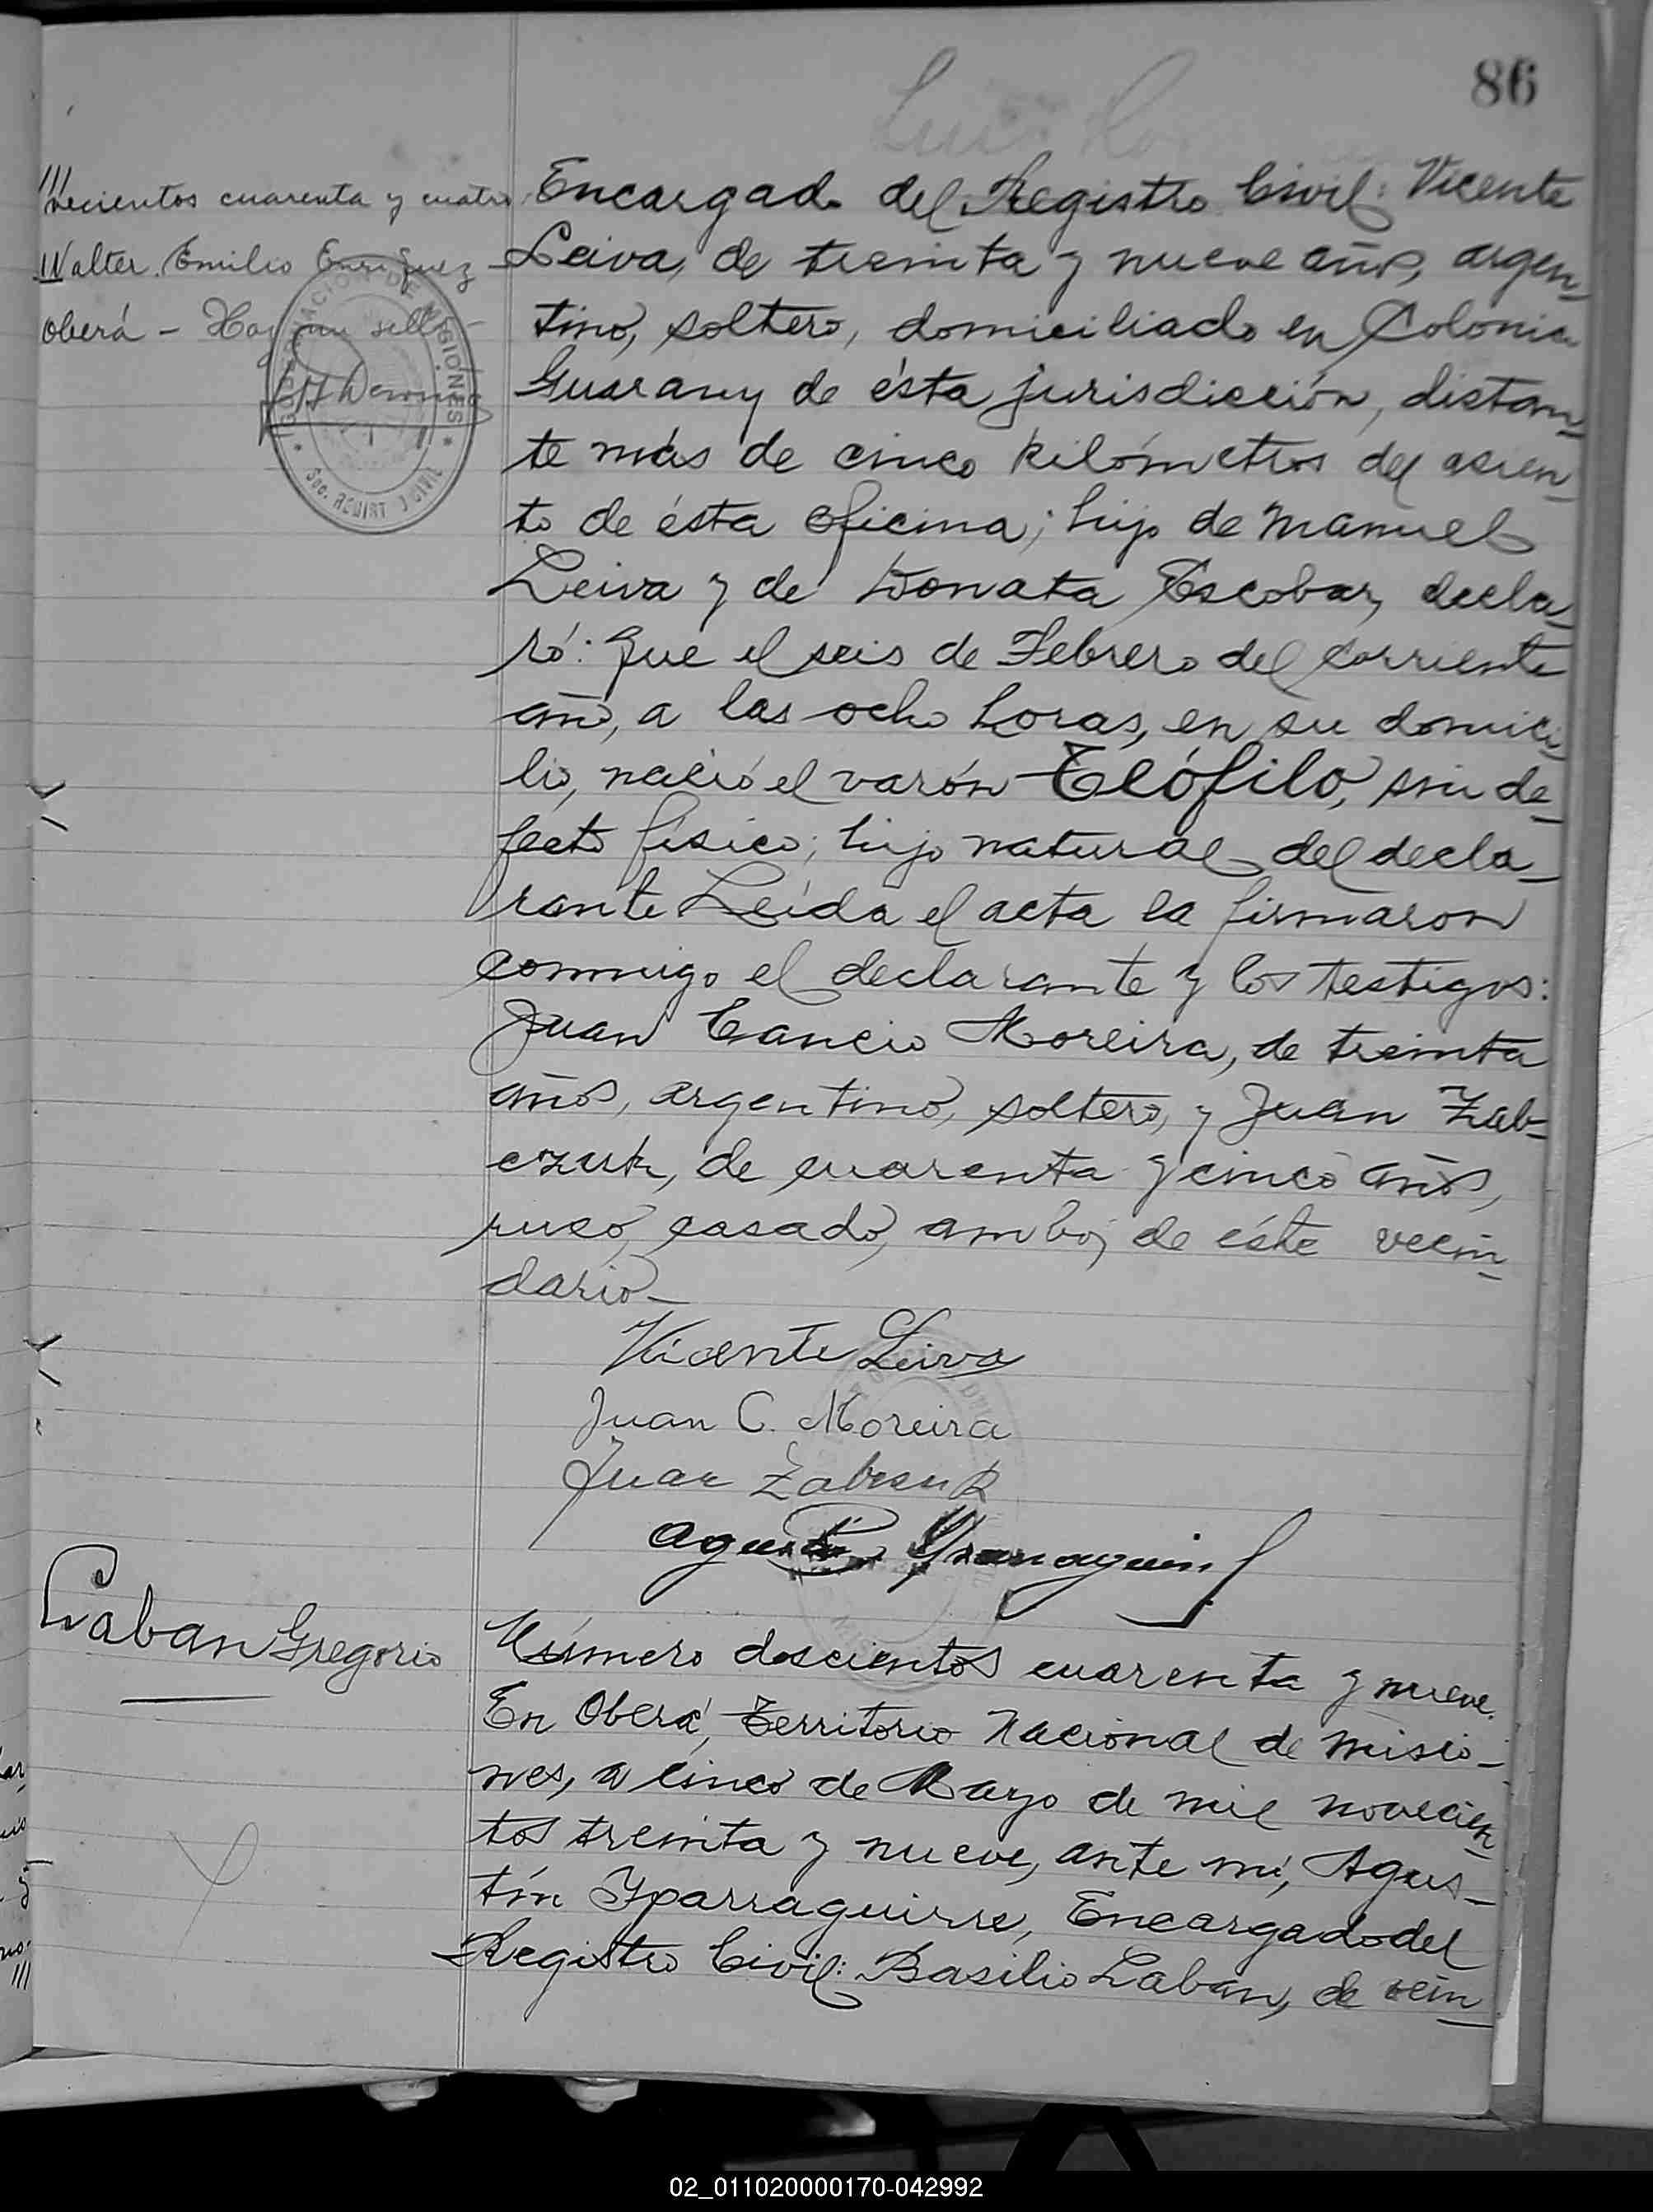 86
///
recientos cuarenta y cuatro
Walter Emilio Enriquez
Oberá - Hay un sello -
GOBERNACION DE MISIONES
Encargado del Registro Civil: Vicente
Leiva, de treinta y nueve años, argen-
tino, soltero, domiciliado en Colonia
Guarany de ésta jurisdicción, distan-
te más de cinco kilómetros del asien-
to de ésta oficina; hijo de Manuel
Leiva y de Donata Escobar, decla-
ró: Que el seis de Febrero del corriente
año, a las ocho horas, en su domici-
lio, nació el varón Teófilo, sin de-
fecto físico; hijo natural del decla-
rante Leída el acta la firmaron
conmigo el declarante y los testigos:
Juan Cancio Moreira, de treinta
años, argentino, soltero, y Juan Zab-
czuk, de cuarenta y cinco años,
ruso, casado, ambos de éste vecin-
dario-
Vicente Leiva
Juan C. Moreira
Juan Zabczuk
Agustin Yparraguirre
Laban Gregorio
Número doscientos cuarenta y nueve.
En Oberá, Territorio Nacional de Misio-
nes, a cinco de Mayo de mil novecien-
tos treinta y nueve, ante mí, Agus-
tín Yparraguirre, Encargado del
Registro Civil: Basilio Laban, de vein-
02_011020000170-042992